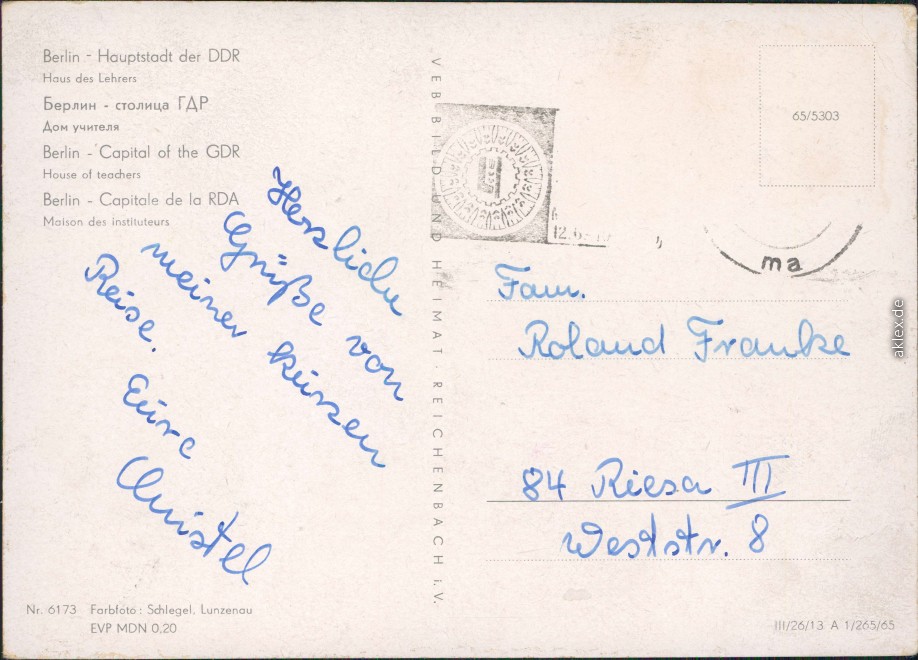 Berlin - Hauptstadt der DDR
Haus des Lehrers
Берлин - столица ГДР
Дом учителя
Berlin - Capital of the GDR
House of teachers
Berlin - Capitale de la RDA
Maison des instituteurs
Herzliche
Grüße von
meiner kurzen
Reise.
Eure
Christel
Nr. 6173 Farbfoto: Schlegel, Lunzenau
EVP MDN 0,20
VEB BILD UND HEIMAT · REICHENBACH i. V.
65/5303
ma
Fam.
Roland Franke
84 Riesa III
Weststr. 8
III/26/13 A 1/265/65
aklex.de